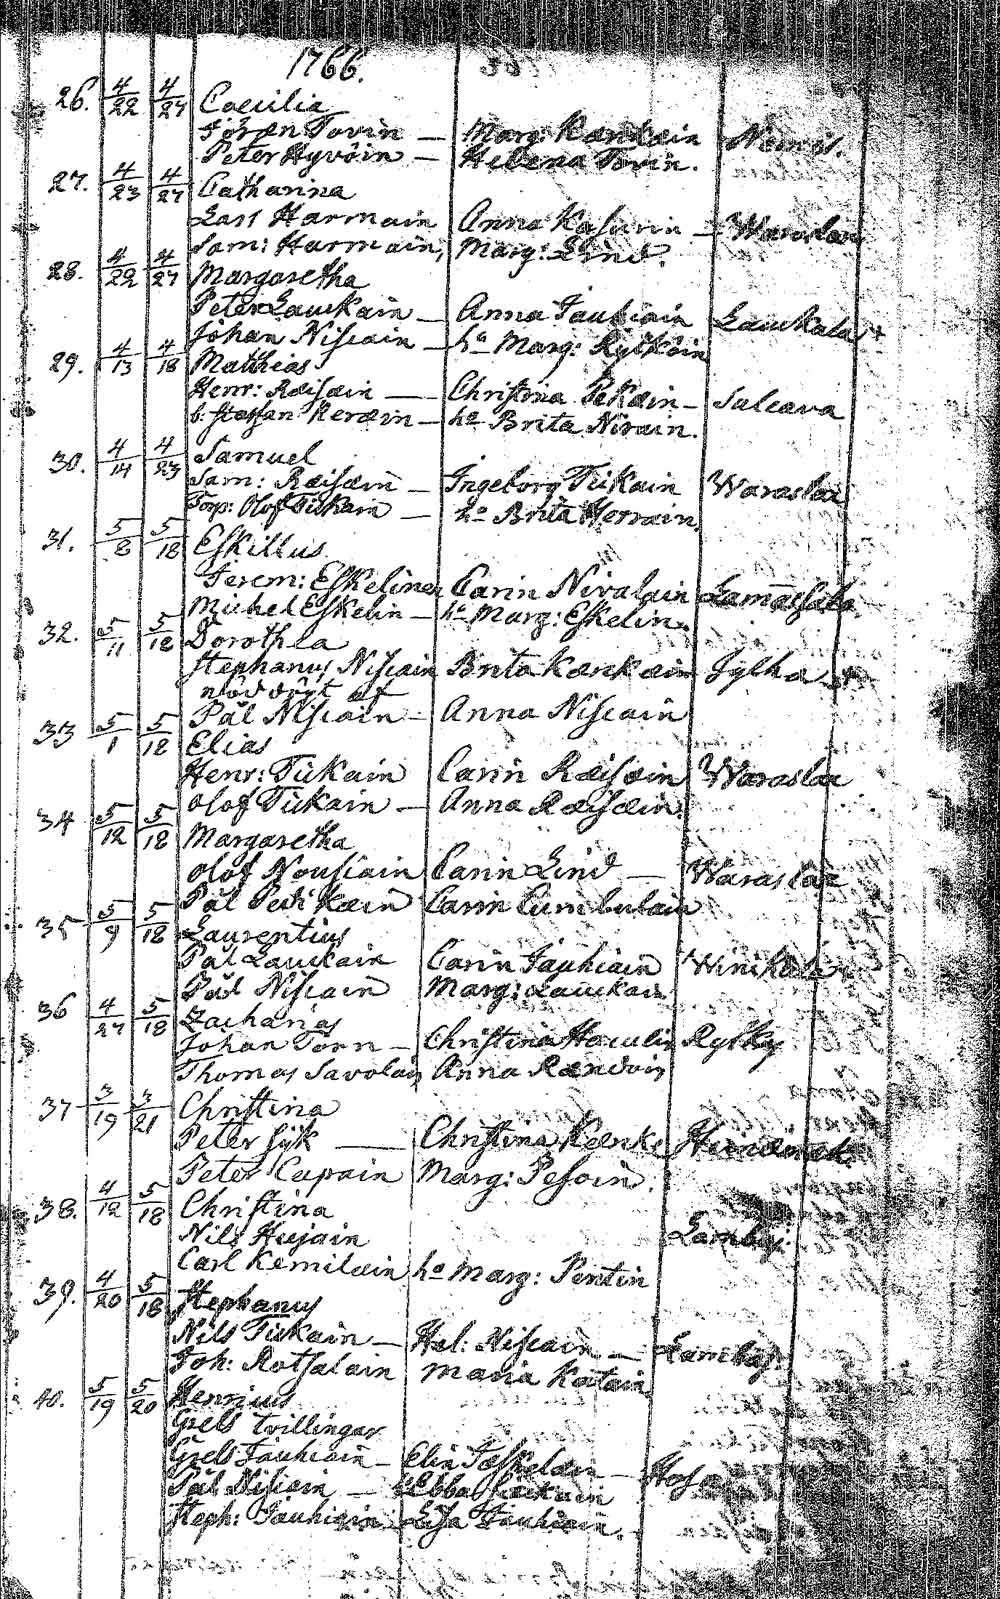 1766.
26. 4/22 4/27 Caecilia
Jöran Tovin — Marg: Rænkæin Nemis.
Peter Hyvöin — Helena Tovin.
27. 4/23 4/27 Catharina
Lars Harmain Anna Kasurin — Waraslax
Sam: Harmain, Marg: Lind.
28. 4/22 4/27 Margaretha
Peter Laukain — Anna Jauhiain Laukala +
Johan Niscain — ho Marg: Rytköin
29. 4/13 4/18 Matthias
Henr: Ræisæin — Christina Pekæin — Saleava
b: Staffan Keræin — ho Brita Nirain.
30. 4/14 4/23 Samuel
Sam: Ræisæin — Ingeborg Tiikain Waraslax
Torp: Olof Tiikain — ho Brita Herrain.
31. 5/8 5/18 Eskillus
Jerem: Eskelinen Carin Nivalain
Michel Eskelin — ho Marg: Eskelin.
32. 5/11 5/18 Dorothea
Stephanus Niscain Brita Kærkæin Jylha +
nöddöpt af
Pål Niscain — Anna Niscain
33 5/1 5/18 Elias
Henr: Tiikain Carin Ræisæin Waraslax
Olof Tiikain — Anna Ræisæin.
34 5/12 5/18 Margaretha
Olof Nousiain Carin Lind — Waraslax
Pål Pitkæin Carin Cumbulain
35 5/9 5/18 Laurentius
Pål Laukain Carin Jauhiain Winikala
Pål Niscain Marg: Laukain
36 4/27 5/18 Zacharias
Johan Torn — Christina Haculin Rytky
Thomas Savolain Anna Rændvin
37 3/19 3/21 Christina
Peter Sÿk — Christina Kænk:
Peter Cupain Marg: Pesoin.
38. 4/12 5/18 Christina
Nils Hujain Lambaj:
Carl Kemilæin ho Marg: Pentin
39. 4/20 5/18 Stephanus
Nils Tiikain — Hel: Niscain — Lambaj:
Joh: Rotsalain Maria Katain
40. 5/19 5/20 Henricus
Grels tvillingar
Grels Jauhiain — Elin Jæskelæin —
Pål Niscain — ho Ebba
Steph: Jauhiain Lisa Jauhiain.